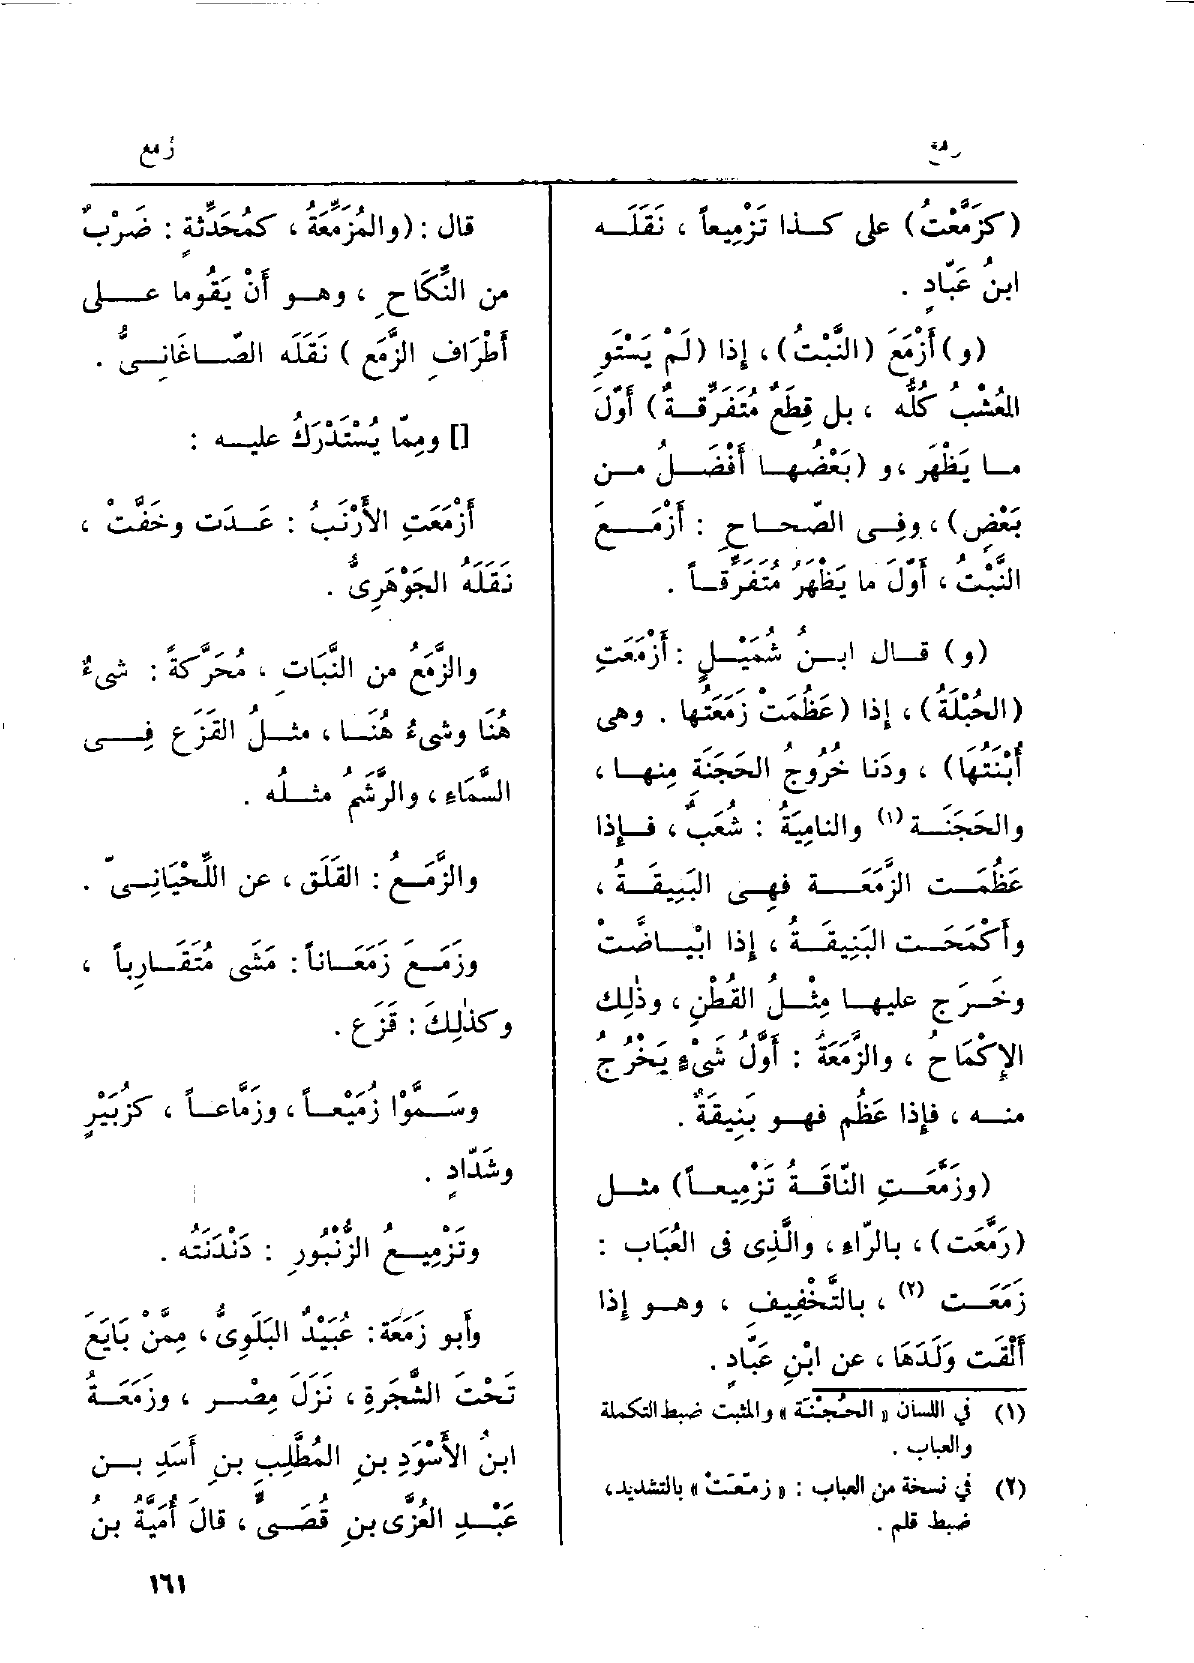 زمع
(كزَمَّعْتُ) على كذا تَزْمِيعاً ، نَقَلَه
ابنُ عَبّادٍ .
(و) أَزْمَعَ (النَّبْتُ) ، إذا (لَمْ يَسْتَوِ
العُشْبُ كُلُّه ، بل قِطَعٌ مُتَفَرِّقةٌ) أَوّلَ
ما يَظْهَر ، و (بَعْضُها أَفْضَلُ من
بَعْضٍ) ، وفى الصّحاحِ : أَزْمَعَ
النَّبْتُ ، أَوّلَ ما يَظْهَرُ مُتَفَرِّقاً .
(و) قال ابنُ شُمَيْلٍ : أَزْمَعَتِ
(الحُبْلَةُ) ، إذا (عَظُمَتْ زَمَعَتُها . وهى
أُبْنَتُها) ، ودَنا خُرُوجُ الحَجَنَةِ مِنها ،
والحَجَنَة (١) والنامِيَةُ : شُعَبٌ ، فإِذا
عَظُمَت الزَّمَعَة فهِى البَنِيقَةُ ،
وأَكْمَحَت البَنِيقَةُ ، إذا ابْيَاضَّتْ
وخَرَج عليها مِثْلُ القُطْنِ ، وذٰلِك
الإِكْمَاحُ ، والزَّمَعَةُ : أَوَّلُ شَىْءٍ يَخْرُجُ
منه ، فإِذا عَظُم فهو بَنِيقَةٌ .
(وزَمَّعَتِ النّاقَةُ تَزْمِيعاً) مثل
(رَمَّعَت) ، بالرّاءِ ، والَّذِى فى العُبَاب :
زَمَعَت (٢) ، بالتَّخْفِيفِ ، وهو إِذا
أَلْقَت وَلَدَهَا ، عن ابْنِ عَبّادٍ .
(١) في اللسان « الحُجْنَة » والمثبت ضبط التكملة
والعباب .
(٢) في نسخة من العباب : « زمَّعَتْ » بالتشديد ،
ضبط قلم .
زمع
قال : (والمُزَمِّعَةُ ، كمُحَدِّثةٍ : ضَرْبٌ
من النِّكَاحِ ، وهو أَنْ يَقُوما على
أَطْرَافِ الزَّمَع ) نَقَلَه الصّاغَانِىُّ .
[] ومِمّا يُسْتَدْرَكُ عليه :
أَزْمَعَتِ الأَرْنَبُ : عَدَت وخَفَّتْ ،
نَقَلَهُ الجَوْهَرِىُّ .
والزَّمَعُ من النَّبَاتِ ، مُحَرَّكةً : شىءٌ
هُنَا وشىءٌ هُنَا ، مثلُ القَزَعِ فِى
السَّمَاءِ ، والرَّشَمُ مثلُه .
والزَّمَعُ : القَلَق ، عن اللِّحْيَانِىّ .
وزَمَعَ زَمَعَاناً : مَشَى مُتَقَارِباً ،
وكذٰلِكَ : قَزَع .
وسَمَّوْا زُمَيْعاً ، وزَمّاعاً ، كزُبَيْرٍ
وشَدّادٍ .
وتَزْمِيعُ الزُّنْبُورِ : دَنْدَنَتُه .
وأَبو زَمَعَة : عُبَيْدٌ البَلَوِىُّ ، مِمَّنْ بَايَعَ
تَحْتَ الشَّجَرةِ ، نَزَلَ مِصْر ، وزَمَعَةُ
ابنُ الأَسْوَدِ بنِ المُطَّلِبِ بنِ أَسَدِ بن
عَبْدِ العُزَّى بنِ قُصَىٍّ ، قالَ أُمَيَّةُ بنُ
١٦١